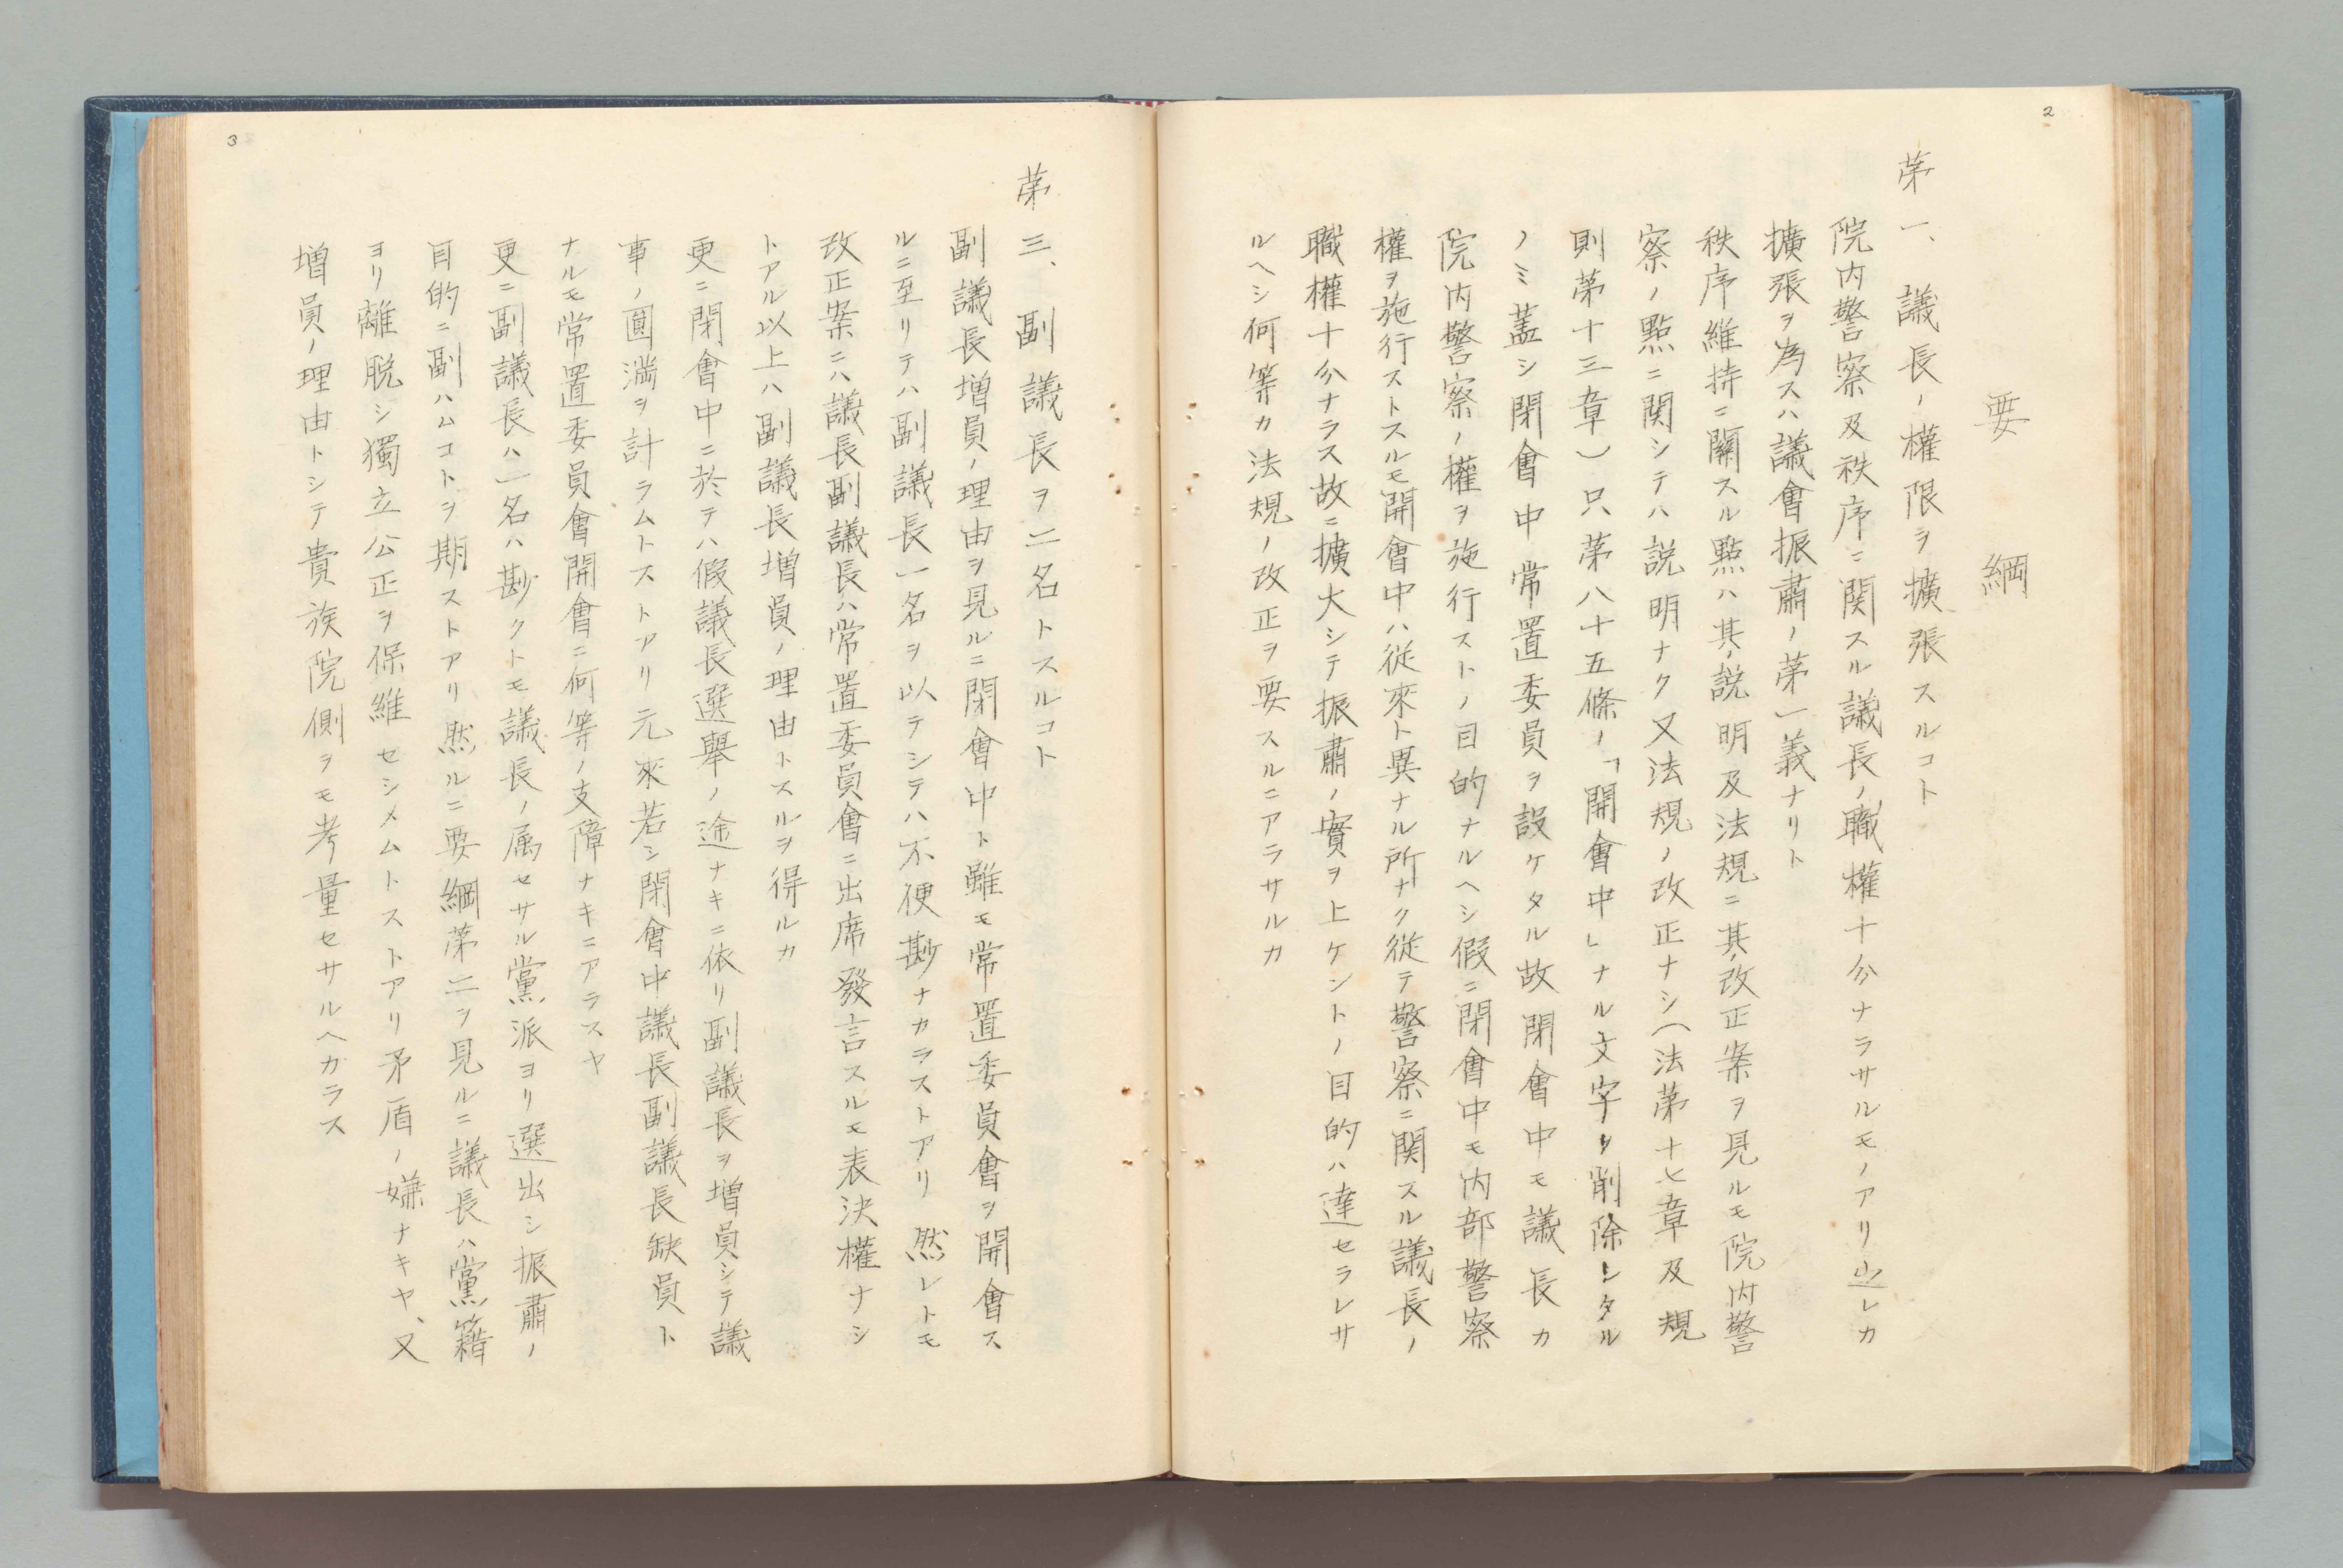 2
要綱
第一、議長ノ權限ヲ擴張スルコト
院内警察及秩序ニ関スル議長ノ職權十分ナラサルモノアリ之レカ
擴張ヲ為スハ議會振肅ノ第一義ナリト
秩序維持ニ關スル點ハ其ノ説明及法規ニ其ノ改正案ヲ見ルモ院内警
察ノ點ニ関シテハ説明ナク又法規ノ改正ナシ（法第十七章及規
則第十三章）只第八十五條ノ「開會中」ナル文字ヲ削除シタル
ノミ蓋シ閉會中常置委員ヲ設ケタル故閉會中モ議長カ
院内警察ノ權ヲ施行ストノ目的ナルヘシ假ニ閉會中モ内部警察
權ヲ施行ストスルモ開會中ハ從來ト異ナル所ナク從テ警察ニ関スル議長ノ
職權十分ナラス故ニ擴大シテ振肅ノ實ヲ上ケントノ目的ハ達セラレサ
ルヘシ何等カ法規ノ改正ヲ要スルニアラサルカ
3
第三、副議長ヲ二名トスルコト
副議長増員ノ理由ヲ見ルニ閉會中ト雖モ常置委員會ヲ開會ス
ルニ至リテハ副議長一名ヲ以テシテハ不便尠ナカラストアリ然レトモ
改正案ニハ議長副議長ハ常置委員會ニ出席發言スルモ表決權ナシ
トアル以上ハ副議長増員ノ理由トスルヲ得ルカ
更ニ閉會中ニ於テハ假議長選擧ノ途ナキニ依リ副議長ヲ増員シテ議
事ノ圓滿ヲ計ラムトストアリ元來若シ閉會中議長副議長缺員ト
ナルモ常置委員會開會ニ何等ノ支障ナキニアラスヤ
更ニ副議長ハ一名ハ尠クトモ議長ノ属セサル黨派ヨリ選出シ振肅ノ
目的ニ副ハムコトヲ期ストアリ然ルニ要綱第二ヲ見ルニ議長ハ黨籍
ヨリ離脱シ獨立公正ヲ保維セシメムトストアリ矛盾ノ嫌ナキヤ、又
増員ノ理由トシテ貴族院側ヲモ考量セサルヘカラス